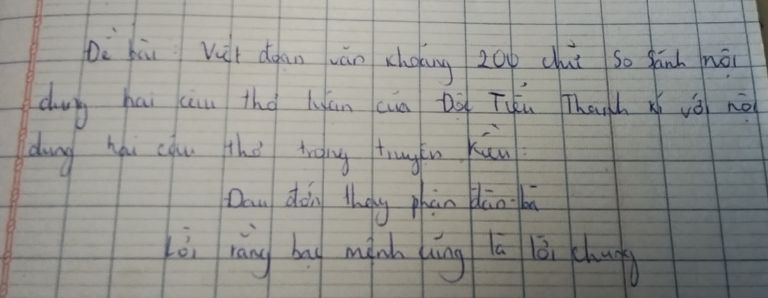 Đề bài: Viết đoạn văn khoảng 200 chữ so sánh nội
dung hai câu thơ luận của Độc Tiểu Thanh kí với nội
dung hai câu thơ trong truyện Kiều:
Đau đớn thay phận đàn bà
Lời rằng bạc mệnh cũng là lời chung